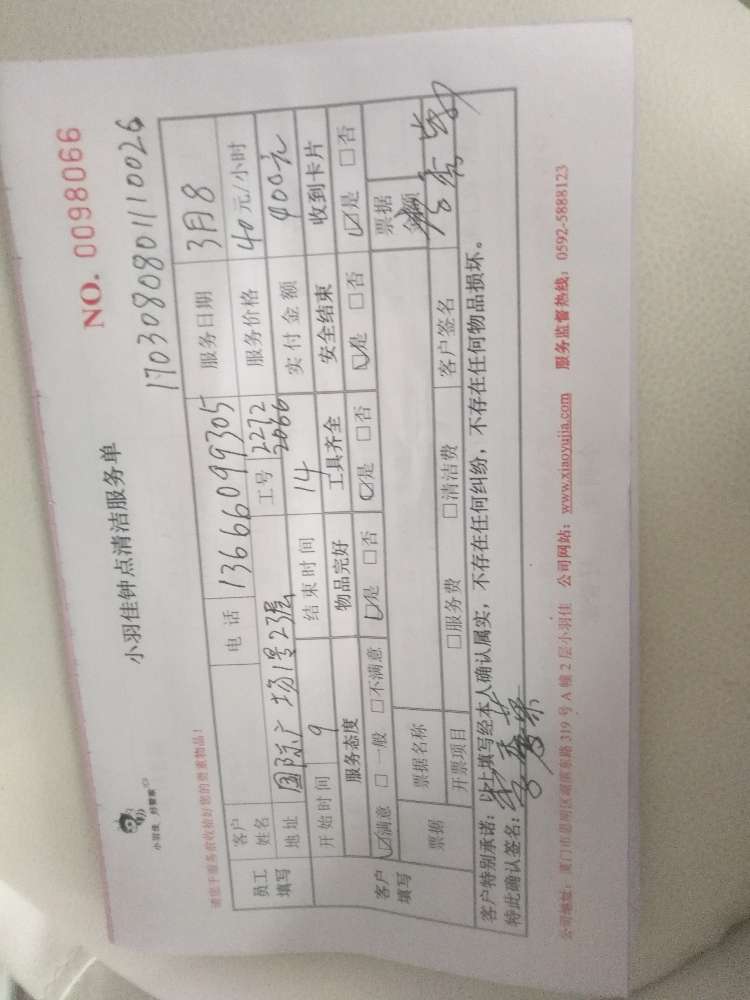 小羽佳 好管家
小羽佳钟点清洁服务单
NO. 0098066
17030808011 10026
请您于服务前收拾好您的贵重物品!
员工填写 客户姓名 电话 13666099305 服务日期 3月8
地址 国际广场1号23层 工号 2272 2066 服务价格 40元/小时
开始时间 9 结束时间 14 实付金额 400元
客户填写 服务态度 物品完好 工具齐全 安全结束 收到卡片
☑满意 □一般 □不满意 ☑是 □否 ☑是 □否 ☑是 □否 ☑是 □否
票据 票据名称 票据金额
开票项目 □服务费 □清洁费 客户签名
客户特别承诺:以上填写经本人确认属实,不存在任何纠纷,不存在任何物品损坏。
特此确认签名:
公司地址:厦门市思明区湖滨东路319号A幢2层小羽佳 公司网站:www.xiaoyujia.com 服务监督热线:0592-5888123